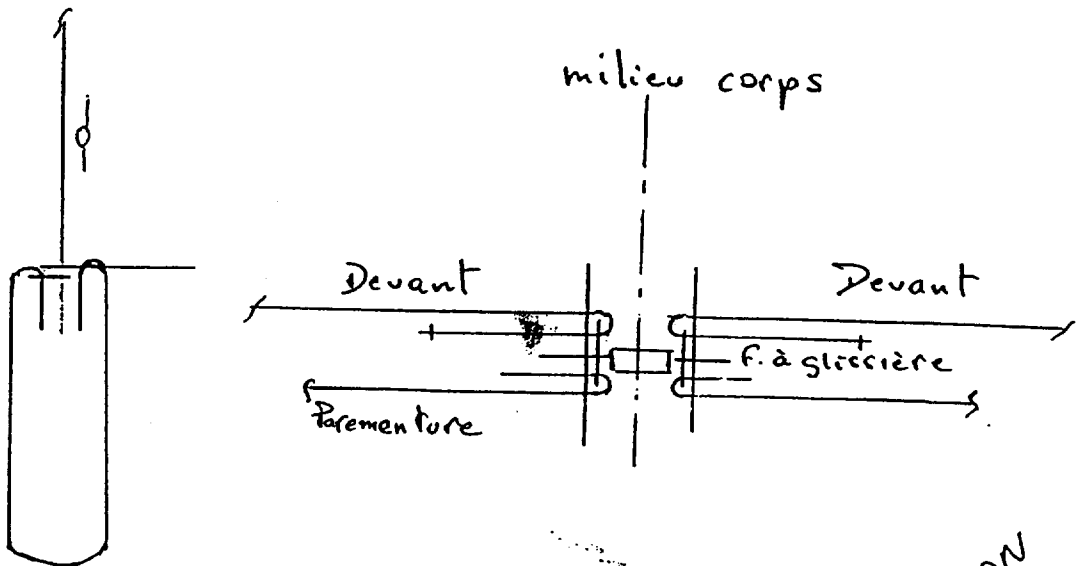 milieu corps
Devant
Devant
f. à glissière
Parementure
ON